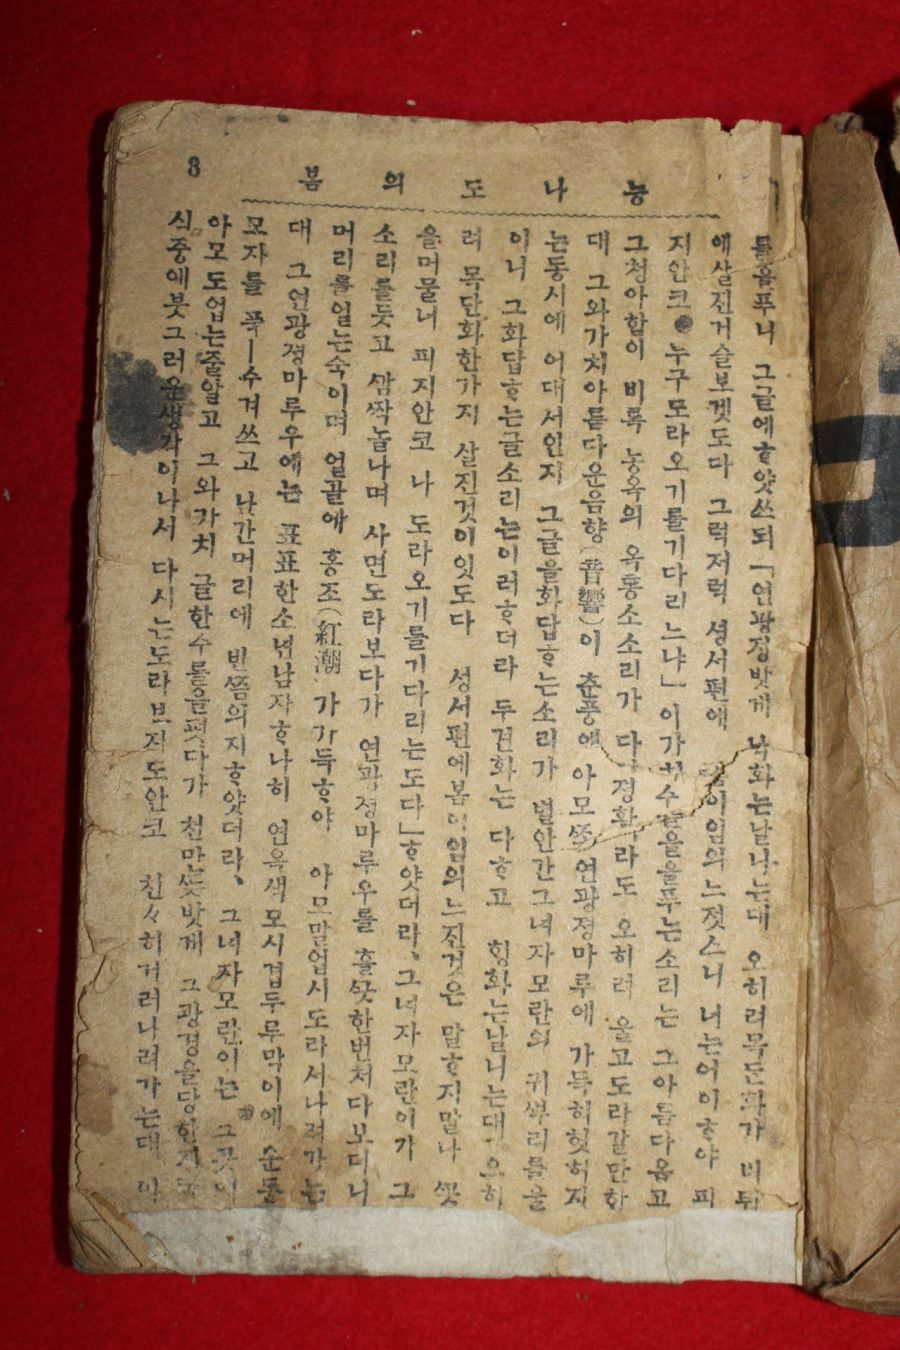 능나도의봄
3
들을푸니 그글에ᄒᆞ얏쓰되「연광정밧게 낙화는날니는대 오히려목단화가 비뒤
에살진거슬보겟도다 그럭저럭 셩서편에 이임의느젓스니 너는어이ᄒᆞ야 피
지안코 누구도라오기를기다리느냐」 이가치 푸는소리는 그아름다옵고
그청아함이 비록 농옥의 옥통소소리가 다정화라도 오히려 울고도라갈만한
대 그와가치아름다운음향(音響)이 춘풍에 아모ᄯᅩ연광졍마루에 가득히헛허지
는동시에 어대서인지 그글을화답ᄒᆞ는소리가 별안간그녀자모란의 귀ᄲᅮ리를울
이니 그화답ᄒᆞ는글소리는이러ᄒᆞ더라 두견화는 다ᄒᆞ고 힝화는날니는대 오히
려 목단화한가지 살진것이잇도다 성서편에봄이임의느진것은 말ᄒᆞ지말나 ᄭᅩᆺ
을머물너 피지안코 나 도라오기를기다리는도다」ᄒᆞ얏더라、그녀자모란이가 그
소리를듯고 ᄭᅡᆷ짝놀나며 사면도라보다가 연광졍마루우를 흘ᄭᅳᆺ한번처다보더니
머리를얼는숙이며 얼골에 홍조(紅潮)가가득ᄒᆞ야 아모말업시도라서나려가는
대 그연광졍마루우에는 표표한소년남자ᄒᆞ나히 연옥색모시겹두루막이에 순통
모자를 푹ー수겨쓰고 난간머리에 반쯤의지ᄒᆞ얏더라、그녀자모란이는 그곳이
아모도업는줄알고 그와가치 글한수를을펏다가 천만ᄯᅳᆺ밧게 그광경을당한지라
식중에붓그러운생각이나서 다시는도라보지도안코 친々히거러나려가는대 이